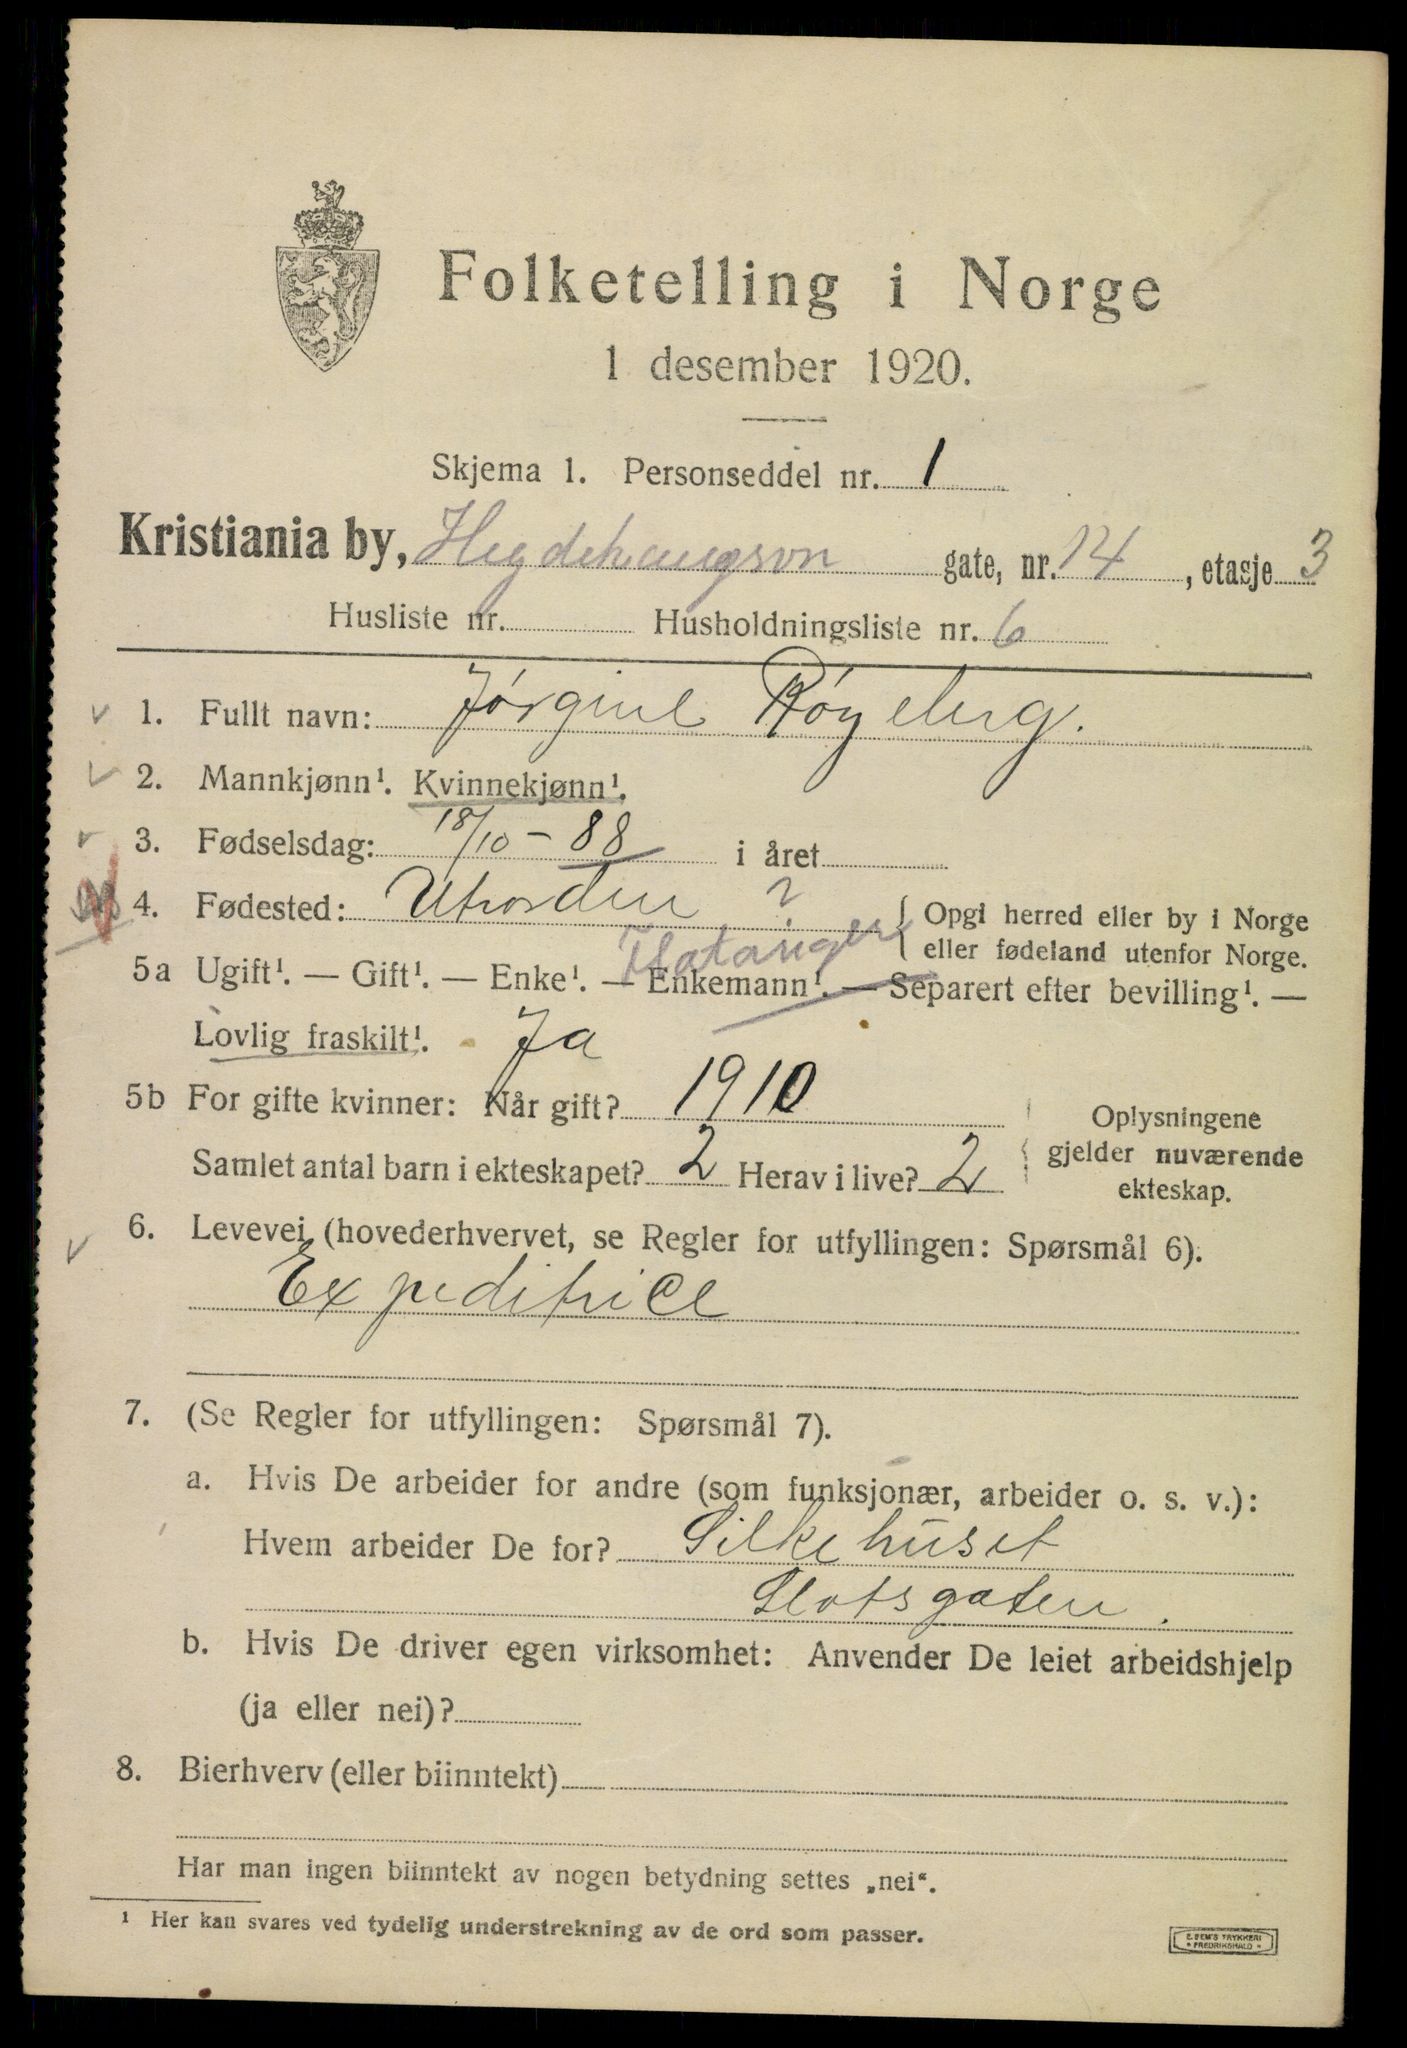 Folketelling i Norge
1 desember 1920.
Skjema 1. Personseddel nr. 1
Kristiania by, Hegdehaugsvn gate, nr. 14, etasje 3
Husliste nr. Husholdningsliste nr. 6
1. Fullt navn: Jørgine Røyeberg.
2. Mannkjønn¹. Kvinnekjønn¹.
3. Fødselsdag: 18/10 - 88 i året
4. Fødested: Utvorden ? { Opgi herred eller by i Norge
Flatanger eller fødeland utenfor Norge.
5a Ugift¹. — Gift¹. — Enke¹. — Enkemann¹. — Separert efter bevilling¹. —
Lovlig fraskilt¹. Ja
5b For gifte kvinner: Når gift? 1910 Oplysningene
Samlet antal barn i ekteskapet? 2 Herav i live? 2 gjelder nuværende
ekteskap.
6. Levevei (hovederhvervet, se Regler for utfyllingen: Spørsmål 6).
Expeditrice
7. (Se Regler for utfyllingen: Spørsmål 7).
a. Hvis De arbeider for andre (som funksjonær, arbeider o. s. v.):
Hvem arbeider De for? Silkehuset
Slotsgaten.
b. Hvis De driver egen virksomhet: Anvender De leiet arbeidshjelp
(ja eller nei)?
8. Bierhverv (eller biinntekt)
Har man ingen biinntekt av nogen betydning settes „nei“.
¹ Her kan svares ved tydelig understrekning av de ord som passer.
E. SEM'S TRYKKERI
* FREDRIKSHALD *